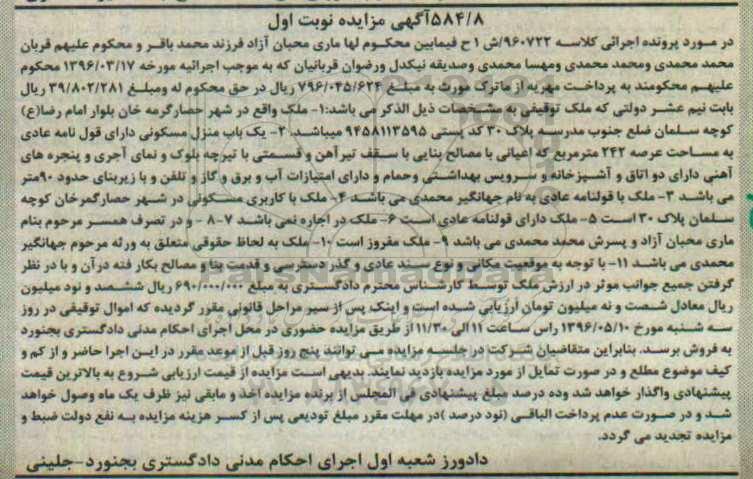 ۵۸۴/۸آگهی مزایده نوبت اول
در مورد پرونده اجرائی کلاسه ۹۶۰۷۲۲/ش ۱ ح فیمابین محکوم لها ماری محبان آزاد فرزند محمد باقر و محکوم علیهم قربان
محمد محمدی ومحمد محمدی ومهسا محمدی وصدیقه نیکدل ورضوان قربانیان که به موجب اجرائیه مورخه ۱۳۹۶/۰۳/۱۷ محکوم
علیهم محکومند به پرداخت مهریه از ماترک مورث به مبلغ ۷۹۶/۰۴۵/۶۲۴ ریال در حق محکوم له ومبلغ ۳۹/۸۰۲/۲۸۱ ریال
بابت نیم عشر دولتی که ملک توقیفی به مشخصات ذیل الذکر می باشد:۱- ملک واقع در شهر حصارگرمه خان بلوار امام رضا(ع)
کوچه سلمان ضلع جنوب مدرسه پلاک ۳۰ کد پستی ۹۴۵۸۱۱۳۵۹۵ میباشد. ۲- یک باب منزل مسکونی دارای قول نامه عادی
به مساحت عرصه ۲۴۲ مترمربع که اعیانی با مصالح بنایی با سقف تیرآهن و قسمتی با تیرچه بلوک و نمای آجری و پنجره های
آهنی دارای دو اتاق و آشپزخانه و سرویس بهداشتی وحمام و دارای امتیازات آب و برق و گاز و تلفن و با زیربنای حدود ۹۰متر
می باشد ۳- ملک با قولنامه عادی به نام جهانگیر محمدی می باشد ۴- ملک با کاربری مسکونی در شهر حصارگمرخان کوچه
سلمان پلاک ۳۰ است ۵- ملک دارای قولنامه عادی است ۶- ملک در اجاره نمی باشد ۷-۸ - و در تصرف همسر مرحوم بنام
ماری محبان آزاد و پسرش محمد محمدی می باشد ۹- ملک مفروز است ۱۰- ملک به لحاظ حقوقی متعلق به ورثه مرحوم جهانگیر
محمدی می باشد ۱۱- با توجه به موقعیت مکانی و نوع سند عادی و گذر دسترسی و قدمت بنا و مصالح بکار فته در آن و با در نظر
گرفتن جمیع جوانب موثر در ارزش ملک توسط کارشناس محترم دادگستری به مبلغ ۶۹۰/۰۰۰/۰۰۰ ریال ششصد و نود میلیون
ریال معادل شصت و نه میلیون تومان ارزیابی شده است و اینک پس از سیر مراحل قانونی مقرر گردیده که اموال توقیفی در روز
سه شنبه مورخ ۱۳۹۶/۰۵/۱۰ راس ساعت ۱۱الی ۱۱/۳۰از طریق مزایده حضوری در محل اجرای احکام مدنی دادگستری بجنورد
به فروش برسد. بنابراین متقاضیان شرکت در جلسه مزایده می توانند پنج روز قبل از موعد مقرر در این اجرا حاضر و از کم و
کیف موضوع مطلع و در صورت تمایل از مورد مزایده بازدید نمایند. بدیهی است مزایده از قیمت ارزیابی شروع به بالاترین قیمت
پیشنهادی واگذار خواهد شد وده درصد مبلغ پیشنهادی فی المجلس از برنده مزایده اخذ و مابقی نیز ظرف یک ماه وصول خواهد
شد و در صورت عدم پرداخت الباقی (نود درصد )در مهلت مقرر مبلغ تودیعی پس از کسر هزینه مزایده به نفع دولت ضبط و
مزایده تجدید می گردد.
دادورز شعبه اول اجرای احکام مدنی دادگستری بجنورد-جلینی